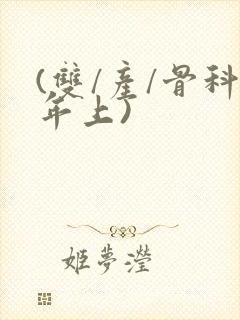 (雙/產/骨科
年上)
姬夢瀅